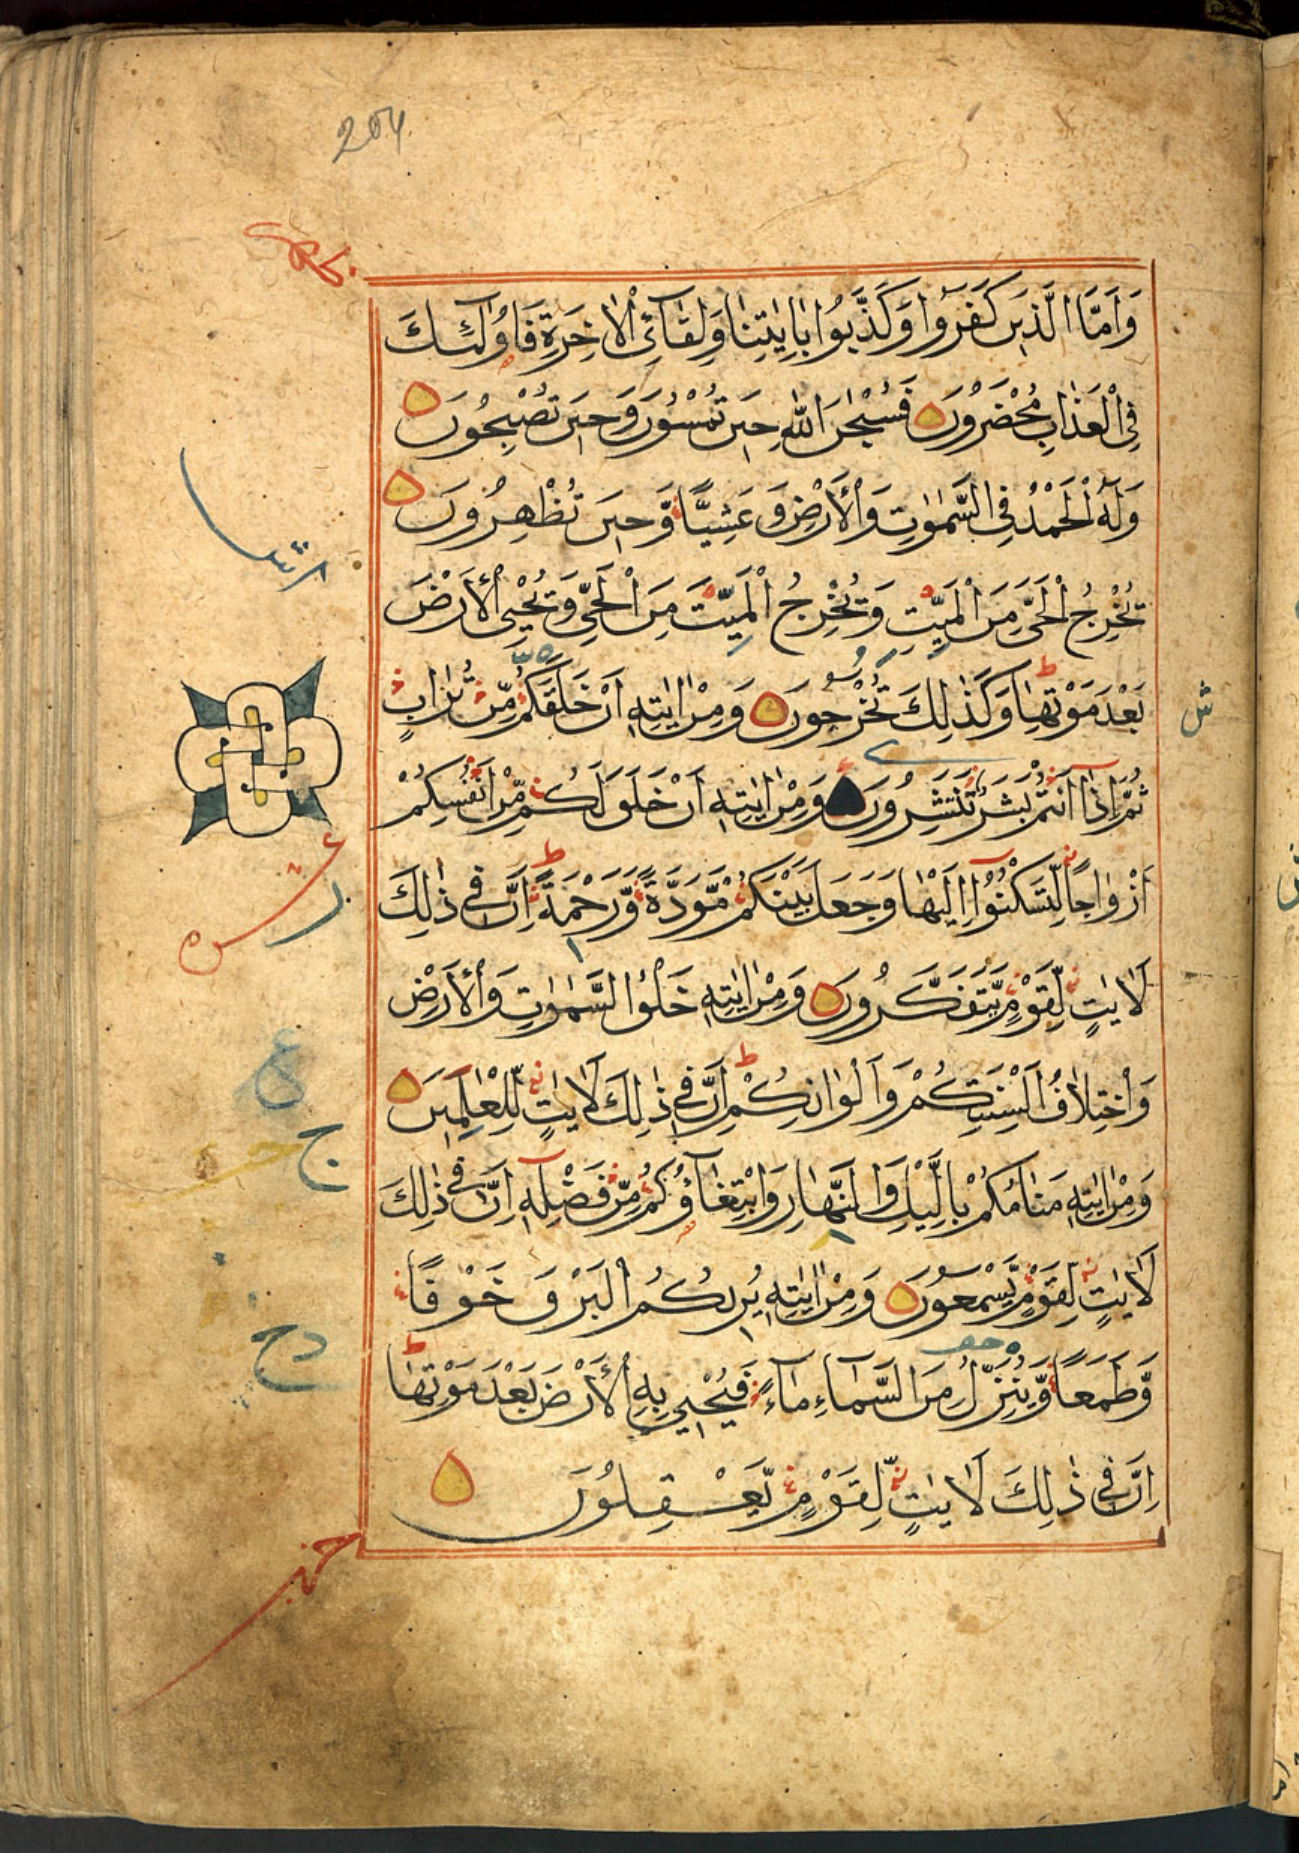 204
وَاَمَّا الَّذِينَ كَفَرُوا وَكَذَّبُوا بِاٰيٰتِنَا وَلِقَآئِ الْاٰخِرَةِ فَاُولٰٓئِكَ
فِي الْعَذَابِ مُحْضَرُونَ فَسُبْحٰنَ اللّٰهِ حِينَ تُمْسُونَ وَحِينَ تُصْبِحُونَ
وَلَهُ الْحَمْدُ فِي السَّمٰوٰتِ وَالْاَرْضِ وَعَشِيًّا وَّحِينَ تُظْهِرُونَ
يُخْرِجُ الْحَيَّ مِنَ الْمَيِّتِ وَيُخْرِجُ الْمَيِّتَ مِنَ الْحَيِّ وَيُحْيِي الْاَرْضَ
بَعْدَ مَوْتِهَا وَكَذٰلِكَ تُخْرَجُونَ وَمِنْ اٰيٰتِهٖ اَنْ خَلَقَكُمْ مِّنْ تُرَابٍ
ثُمَّ اِذَآ اَنْتُمْ بَشَرٌ تَنْتَشِرُونَ وَمِنْ اٰيٰتِهٖ اَنْ خَلَقَ لَكُمْ مِّنْ اَنْفُسِكُمْ
اَزْوَاجًا لِّتَسْكُنُوٓا اِلَيْهَا وَجَعَلَ بَيْنَكُمْ مَّوَدَّةً وَّرَحْمَةً اِنَّ فِي ذٰلِكَ
لَاٰيٰتٍ لِّقَوْمٍ يَّتَفَكَّرُونَ وَمِنْ اٰيٰتِهٖ خَلْقُ السَّمٰوٰتِ وَالْاَرْضِ
وَاخْتِلَافُ اَلْسِنَتِكُمْ وَاَلْوَانِكُمْ اِنَّ فِي ذٰلِكَ لَاٰيٰتٍ لِّلْعٰلِمِينَ
وَمِنْ اٰيٰتِهٖ مَنَامُكُمْ بِالَّيْلِ وَالنَّهَارِ وَابْتِغَآؤُكُمْ مِّنْ فَضْلِهٖ اِنَّ فِي ذٰلِكَ
لَاٰيٰتٍ لِّقَوْمٍ يَّسْمَعُونَ وَمِنْ اٰيٰتِهٖ يُرِيكُمُ الْبَرْقَ خَوْفًا
وَّطَمَعًا وَّيُنَزِّلُ مِنَ السَّمَآءِ مَآءً فَيُحْيِي بِهِ الْاَرْضَ بَعْدَ مَوْتِهَا
اِنَّ فِي ذٰلِكَ لَاٰيٰتٍ لِّقَوْمٍ يَّعْقِلُونَ